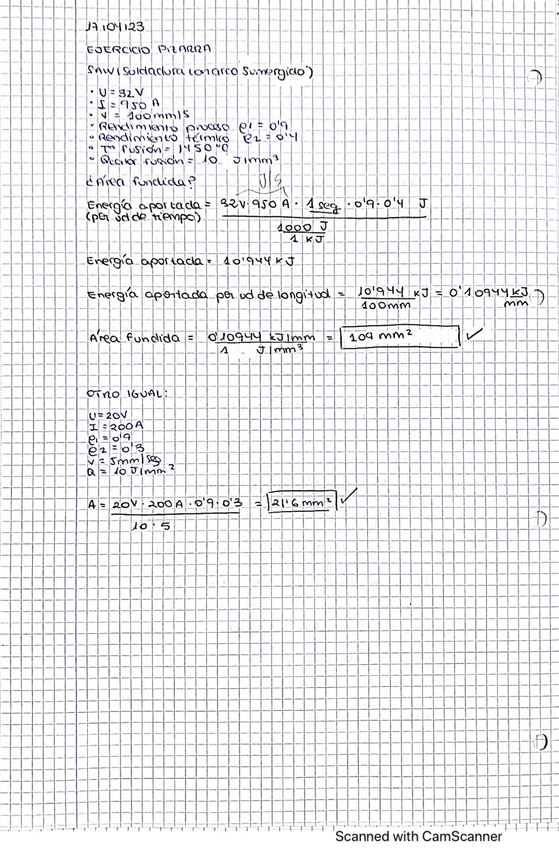 17/04/23
EJERCICIO PIZARRA
SAW (Soldadura con arco Sumergido)
· U = 32V
· I = 950 A
· V = 100 mm/s
· Rendimiento proceso e1 = 0'9
· Rendimiento térmico e2 = 0'4
· Tª fusión = 1450 ºC
· Qcalor fusión = 10 J/mm³
¿Área fundida?
J/s
Energía aportada = 32V·950 A · 1 seg · 0'9·0'4 J
(por ud de tiempo)
1000 J
1 kJ
Energía aportada = 10'944 kJ
Energía aportada por ud de longitud = 10'944 kJ / 100mm = 0'10944 kJ/mm
Área fundida = 0'10944 kJ/mm / 1 J/mm³ = 109 mm² ✓
OTRO IGUAL:
U=20V
I=200A
e1=0'9
e2=0'3
v=5mm/seg
Q=10 J/mm²
A = 20V·200A·0'9·0'3 / 10·5 = 21'6 mm² ✓
Scanned with CamScanner